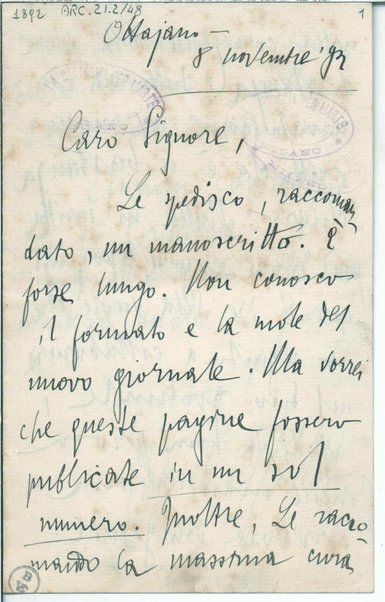 1892 ARC.21.2/48 1
Ottajano —
8 novembre '92
Caro Signore,
Le spedisco, raccoman
dato, un manoscritto. È
forse lungo. Non conosco
il formato e la mole del
nuovo giornale. Ma vorrei
che queste pagine fossero
pubblicate in un sol
numero. Inoltre, Le racco
mando la massima cura